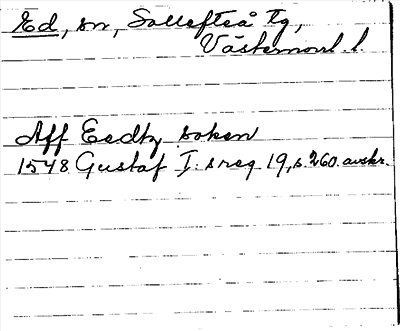 Ed, sn, Sollefteå tg,
Västernorrl. l.
Aff Eedtz soken
1548 Gustaf I:s reg 19, s. 260. avskr.